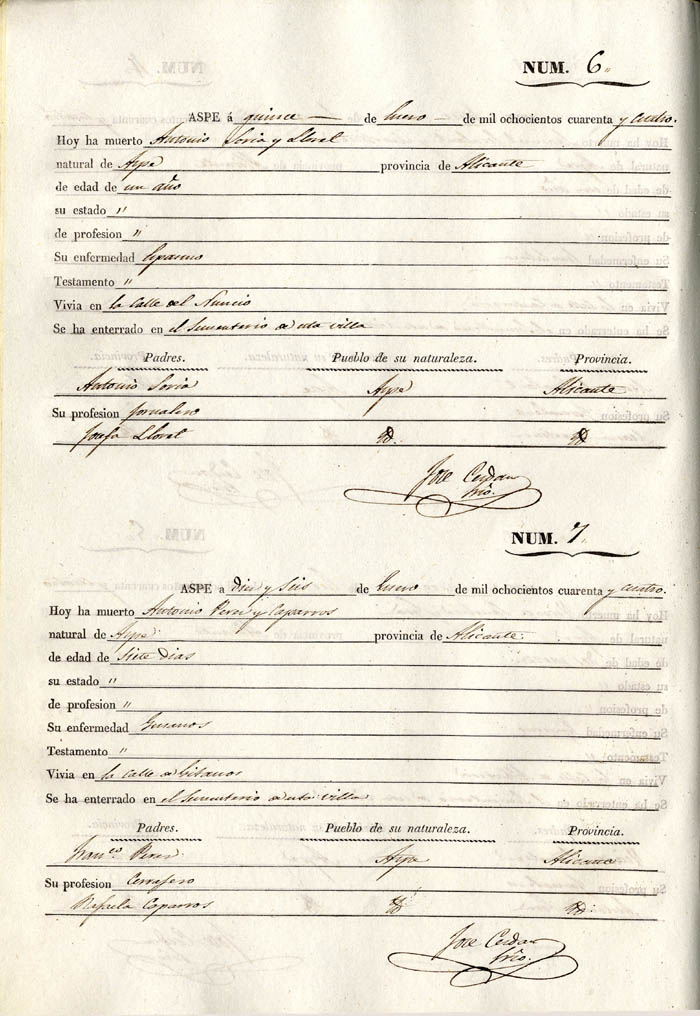 NUM. 6
ASPE á quince de Enero de mil ochocientos cuarenta y cuatro.
Hoy ha muerto Antonio Soria y Lloret
natural de Aspe provincia de Alicante
de edad de un año
su estado "
de profesion "
Su enfermedad Espasmo
Testamento "
Vivia en la Calle del Nuncio
Se ha enterrado en el Sementerio de esta villa
Padres. Pueblo de su naturaleza. Provincia.
Antonio Soria Aspe Alicante
Su profesion Jornalero
Josefa Lloret Yd. Yd.
Jose Cerdan
Srio.
NUM. 7
ASPE a diez y seis de Enero de mil ochocientos cuarenta y cuatro.
Hoy ha muerto Antonio Perez y Caparros
natural de Aspe provincia de Alicante.
de edad de Siete dias
su estado "
de profesion "
Su enfermedad Gusanos
Testamento "
Vivia en la Calle de Gitanos
Se ha enterrado en el Sementerio de esta villa
Padres. Pueblo de su naturaleza. Provincia.
Franco. Perez Aspe Alicante
Su profesion Cerrajero
Rafaela Caparros Yd. Yd.
Jose Cerdan
Srio.